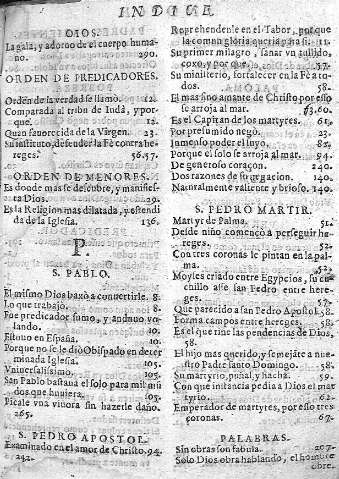 INDICE
OJOS.
La gala, y adorno de el cuerpo huma-
no. 290.
ORDEN DE PREDICADORES.
Orden de la verdad se llamò. 12.
Comparada al tribu de Iudá, y por-
que. 12.
Quan fauorecida de la Virgen. 23.
Su instituto, defender la Fè contra he-
reges. 56.57.
ORDEN DE MENORES.
Es donde mas se descubre, y manifies-
ta Dios. 29.
Es la Religion mas dilatada, y estendi
da de la Iglesia. 136.
P.
S. PABLO.
El mismo Dios baxò a conuertirle. 8.
Lo que trabajò.
Fue predicador sumo, y anduuo vo-
lando. 10.
Estuuo en España. 10.
Porque no se le diò Obispado en deter
minada Iglesia. 105.
Vniuersalissimo. 105.
San Pablo bastaua el solo para mil mū
dos que huuiera. 105.
Picale vna viuora sin hazerle daño.
265.
S. PEDRO APOSTOL.
Examinado en el amor de Christo. 94.
242.
Reprehendenle en el Tabor, porque
la comun gloria queria para si. 11.
Su primer milagro, sanar vn tullido,
coxo, y por que. 57.
Su ministerio, fortalecer en la Fè a to-
dos. 58.
El mas fino amante de Christo por esso
se arroja al mar. 60.
Es el Capitan de los martyres. 61.
Por presumido negò. 23.
Inmenso poder el suyo. 82.
Porque el solo se arroja al mar. 94.
De generoso coraçon. 240.
Dos razones de su negacion. 240.
Naturalmente valiente y brioso. 140.
S. PEDRO MARTIR.
Martyr de Palma. 51.
Desde niño comencò a perseguir he-
reges. 52.
Con tres coronas le pintan en la pal-
ma. 52.
Moyses criado entre Egypcios, su en-
cillo assi san Pedro entre here-
ges. 57.
Que parecido a san Pedro Apostol. 58.
Forma campos entre hereges. 58.
Es el que tiñe las pendencias de Dios,
58.
El hijo mas querido, y semejāte a nues-
tro Padre santo Domingo. 58.
Su martyrio, puñal, y hacha. 59.
Con que instancia pedia a Dios el mar
tyrio. 62.
Emperador de martyres, por esso tres
coronas. 67.
PALABRAS.
Sin obras son fabula. 207.
Solo Dios obra hablando, el hombre
obre.